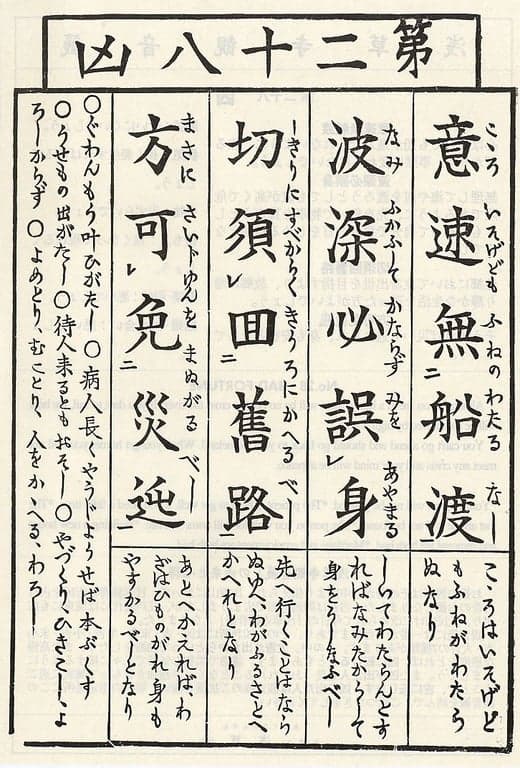 第二十八凶
こゝろ いそげども ふねのわたる なし
意速無ニ船渡一
こゝろはいそげど
もふねがわたら
ぬなり
なみ ふかふして かならず みを あやまる
波深必誤身
しいてわたらんとす
ればなみたかくして
身をうしなふべし
しきりにすべからく きうろにかへる べし
切須レ囬ニ舊路一
先へ行くことはなら
ぬゆへ、わがふるさとへ
かへれとなり
まさに さいじゆんを まぬがる べし
方可レ免ニ災迍一
あとへかえれば、わ
ざはひものがれ身も
やすかるべしとなり
〇ぐわんもう叶ひがたし〇病人長くやうじようせば本ぶくす
〇うせもの出がたし〇待人来るともおそし〇やづくり、ひきこし、よ
ろしからず〇よめとり、むことり、人をかゝへる、わろし